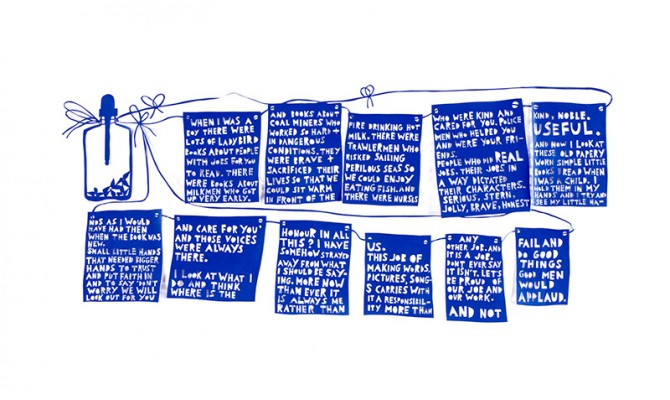 WHEN I WAS A
BOY THERE WERE
LOTS OF LADYBIRD
BOOKS ABOUT PEOPLE
WITH JOBS FOR YOU
TO READ. THERE
WERE BOOKS ABOUT
MILKMEN WHO GET
UP VERY EARLY.
AND BOOKS ABOUT
COAL MINERS WHO
WORKED SO HARD +
IN DANGEROUS
CONDITIONS. THEY
WERE BRAVE +
SACRIFICED THEIR
LIVES SO THAT WE
COULD SIT WARM
IN FRONT OF THE
FIRE DRINKING HOT
MILK. THERE WERE
TRAWLERMEN WHO
RISKED SAILING
PERILOUS SEAS SO
WE COULD ENJOY
EATING FISH. AND
THERE WERE NURSES
WHO WERE KIND AND
CARED FOR YOU. POLICE
MEN WHO HELPED YOU
AND WERE YOUR FRI-
ENDS.
PEOPLE WHO DID REAL
JOBS. THEIR JOBS IN
A WAY DICTATED
THEIR CHARACTERS.
SERIOUS, STERN.
JOLLY, BRAVE, HONEST
KIND, NOBLE.
USEFUL.
AND NOW I LOOK AT
THESE OLD PAPERY
WORN SIMPLE LITTLE
BOOKS I READ WHEN
I WAS A CHILD. I
HOLD THEM IN MY
HANDS AND I TRY AND
SEE MY LITTLE HA-
NDS AS I WOULD
HAVE HAD THEN
WHEN THE BOOK WAS
NEW.
SMALL LITTLE HANDS
THAT NEEDED BIGGER
HANDS TO TRUST
AND PUT FAITH IN
AND TO SAY 'DON'T
WORRY WE WILL
LOOK OUT FOR YOU
AND CARE FOR YOU'
AND THOSE VOICES
WERE ALWAYS
THERE.
I LOOK AT WHAT I
DO AND THINK
WHERE IS THE
HONOUR IN ALL
THIS? I HAVE
SOMEHOW STRAYED
AWAY FROM WHAT
I SHOULD BE SAY-
ING. MORE NOW
THAN EVER IT
IS ALWAYS ME
RATHER THAN
US.
THIS JOB OF
MAKING WORDS,
PICTURES, SONG-
S CARRIES WITH
IT A RESPONSIBIL-
ITY MORE THAN
ANY
OTHER JOB. AND
IT IS A JOB.
DON'T EVER SAY
IT ISN'T. LET'S
BE PROUD OF
OUR JOB AND
OUR WORK.
AND NOT
FAIL AND
DO GOOD
THINGS
GOOD MEN
WOULD
APPLAUD.